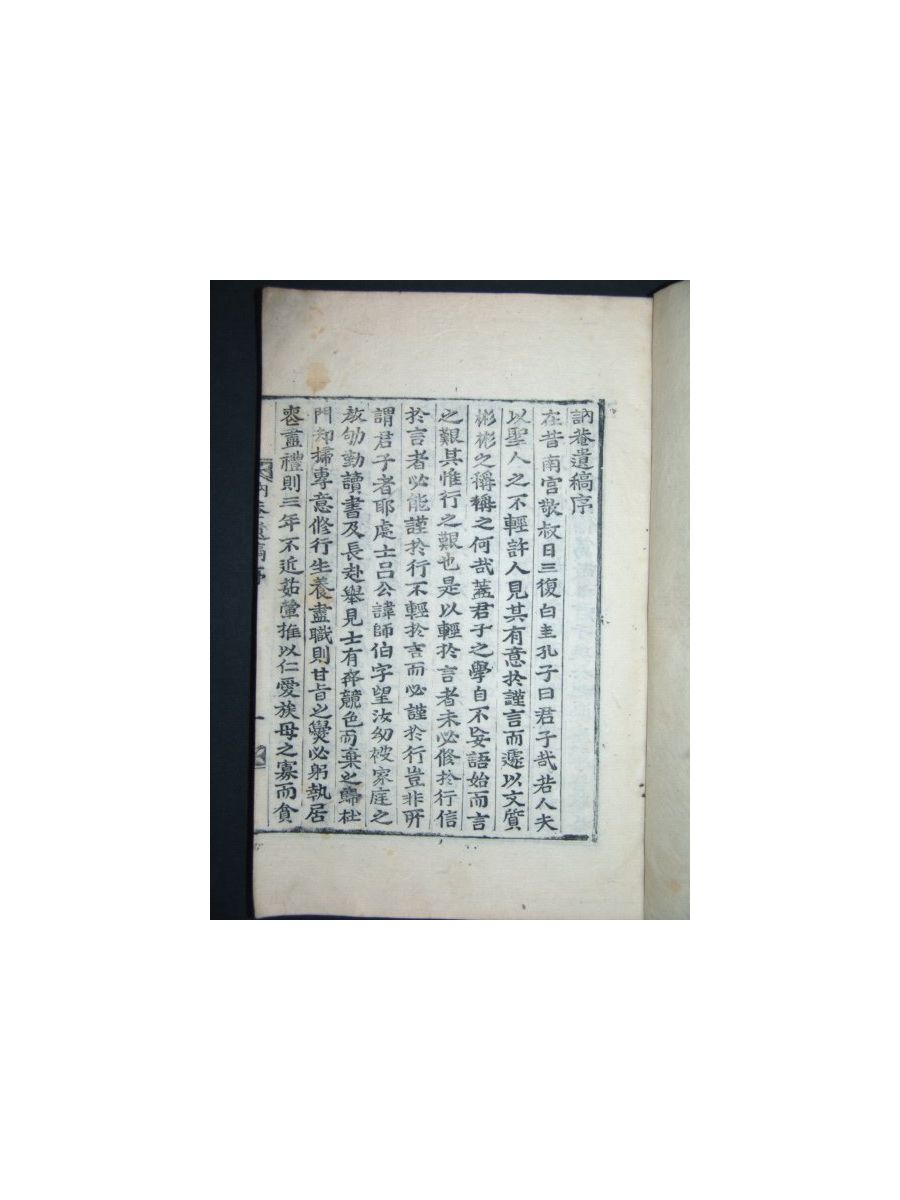 訥菴遺稿序
在昔南宫敬叔日三復白圭孔子曰君子㢤若人夫
以聖人之不輕許人見其有意於謹言而遽以文質
彬彬之稱稱之何㢤蓋君子之學自不妄語始而言
之艱其惟行之艱也是以輕於言者未必修於行信
於言者必能謹於行不輕於言而必謹於行豈非所
謂君子者耶處士呂公諱師伯字望汝幼被家庭之
教劬勤讀書及長赴舉見士有奔競色而棄之歸杜
門却掃專意修行生養盡職則甘旨之㸑必躬執居
喪盡禮則三年不近茹葷推以仁愛族母之寡而貪
遺稿序
一